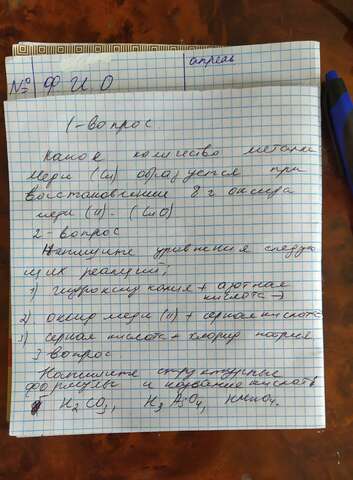 № Ф И О апрель
1-вопрос
Какое количество металла
меди (Cu) образуется при
восстановлении 8 г оксида
меди (II) - (CuO)
2-вопрос
Напишите уравнения следую
щих реакций;
1) гидроксид калия + азотная
кислота →
2). оксид меди (II) + серная кислота
3) серная кислота + хлорид натрия
3-вопрос.
Напишите структурные
формулы и название кислот
H2CO3, H3AsO4, HMnO4.